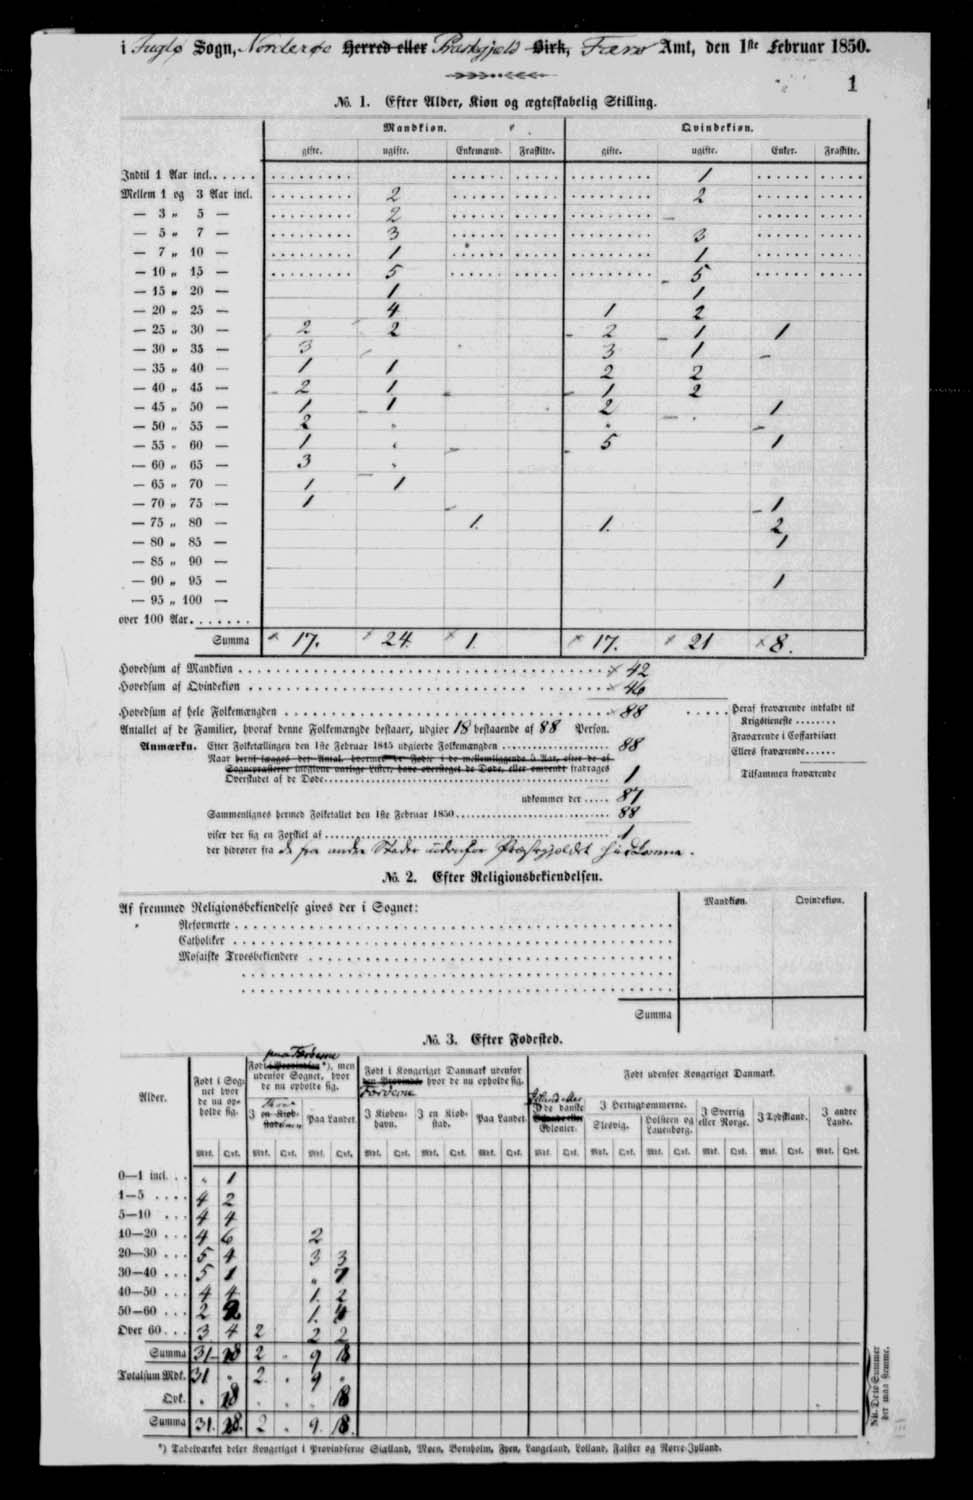 i Fuglø Sogn, Norderøe Herred eller Præstegjeld Birk, Færø Amt, den 1ste Februar 1850.
1
No. 1. Efter Alder, Kiøn og ægteskabelig Stilling.
Mandkiøn. Qvindekiøn.
gifte. ugifte. Enkemænd. Fraskilte. gifte. ugifte. Enker. Fraskilte.
Indtil 1 Aar incl. 1
Mellem 1 og 3 Aar incl. 2 2
— 3 „ 5 — 2
— 5 „ 7 — 3 3
— 7 „ 10 — 1 1
— 10 „ 15 — 5 5
— 15 „ 20 — 1 1
— 20 „ 25 — 4 1 2
— 25 „ 30 — 2 2 2 1 1
— 30 „ 35 — 3 3 1
— 35 „ 40 — 1 1 2 2
— 40 „ 45 — 2 1 1 2
— 45 „ 50 — 1 1 2 1
— 50 „ 55 — 2
— 55 „ 60 — 1 5 1
— 60 „ 65 — 3
— 65 „ 70 — 1 1
— 70 „ 75 — 1 1
— 75 „ 80 — 1. 1. 2
— 80 „ 85 — 1
— 85 „ 90 —
— 90 „ 95 — 1
— 95 „ 100 —
over 100 Aar.
Summa 17. 24. 1. 17. 21 8.
Hovedsum af Mandkiøn 42
Hovedsum af Qvindekiøn 46
Hovedsum af hele Folkemængden 88
Heraf fraværende indkaldt til Krigstieneste
Antallet af de Familier, hvoraf denne Folkemængde bestaaer, udgiør 18 bestaaende af 88 Person.
Fraværende i Coffardifart
Anmærkn. Efter Folketællingen den 1ste Februar 1845 udgiorde Folkemængden 88
Ellers fraværende
Naar hertil lægges det Antal, hvormed de Fødte i de mellemliggende 5 Aar, efter de af
Sognepræsterne indgivne aarlige Lister, have oversteget de Døde, eller omvendt fradrages
Overskudet af de Døde 1
Tilsammen fraværende
udkommer der 87
Sammenlignes hermed Folketallet den 1ste Februar 1850 88
viser der sig en Forskiel af 1
der hidrører fra de fra andre Steder udenfor Præstegjeldet
No. 2. Efter Religionsbekiendelsen.
Mandkiøn. Qvindekiøn.
Af fremmed Religionsbekiendelse gives der i Sognet:
Reformerte
Catholiker
Mosaiske Troesbekiendere
Summa
No. 3. Efter Fødested.
Alder.
Født i Sognet hvor de nu opholde sig.
paa Færøerne
Født i Provindsen *), men udenfor Sognet, hvor de nu opholde sig.
Født i Kongeriget Danmark udenfor den Provinds hvor de nu opholde sig.
Færøerne
Født udenfor Kongeriget Danmark.
I en Kiøbstad. Paa Landet.
I Kiøbenhavn. I en Kiøbstad. Paa Landet.
I de danske Colonier.
I Hertugdømmerne.
Slesvig. Holsteen og Lauenborg.
I Sverrig eller Norge. I Tydskland. I andre Lande.
Mdk. Qvk. Mdk. Qvk. Mdk. Qvk. Mdk. Qvk. Mdk. Qvk. Mdk. Qvk. Mdk. Qvk. Mdk. Qvk. Mdk. Qvk. Mdk. Qvk. Mdk. Qvk. Mdk. Qvk.
0—1 incl. „ 1
1—5 4 2
5—10 4 4
10—20 4 6 2
20—30 5 4 3 3
30—40 5 1 „ 7
40—50 4 4 1. 2
50—60 2 2 1. 4
Over 60 3 4 2 2 2
Summa 31 28 2 „ 9 18
Totalsum Mdk. 31 „ 2 „ 9 „
Qvk. „ 28 18
Summa 31. 28. 2 9. 18.
NB. Disse Summer der maa stemme.
*) Tabelværket deler Kongeriget i Provindserne Siælland, Møen, Bornholm, Fyen, Langeland, Lolland, Falster og Nørre-Jylland.